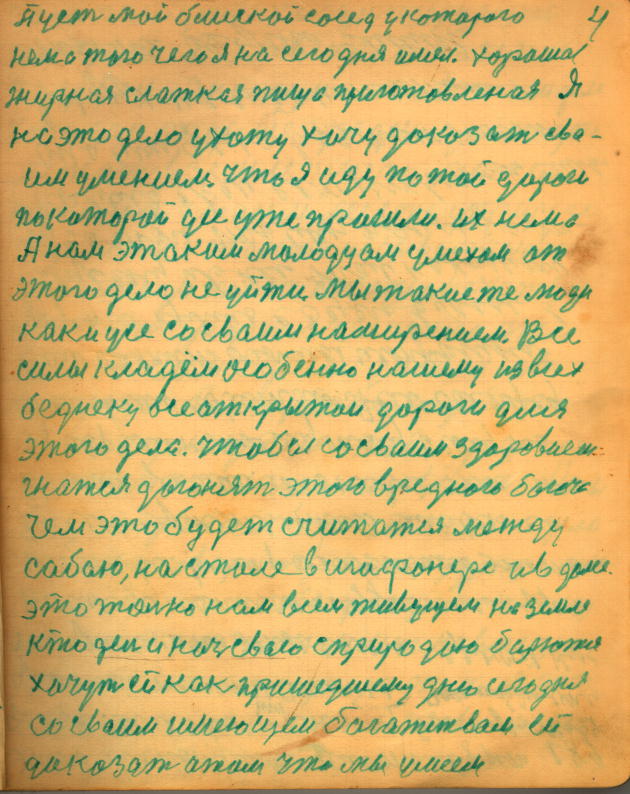 Пуст мой блиской сосед укотарого 4
нема того чего я на сегодня имел. хорошая
жирная слаткая пища приготовленая Я
на это дело ухожу хочу доказат сва-
им умением, что я иду по той дороги
по которой уже прашли. их нема
А нам этаким молодцам умехом от
этого дело не уйти, мы такие же люди
как и усе со сваим намирением. Все
силы кладём особенно нашему из всех
беднеку все аткрытои дороги для
этого дела. чтобы со сваим здоровием
гнатся догонят этого вредного богоча
чем это будет считатся между
сабаю, на столе в шафонере и в доме.
это толко нам всем живущем на земле
кто ден и ноч сваею с природаю борются
хочут ей как пришедшему дню сегодня
со сваим имеющем богатством ей
доказат атом что мы умеем